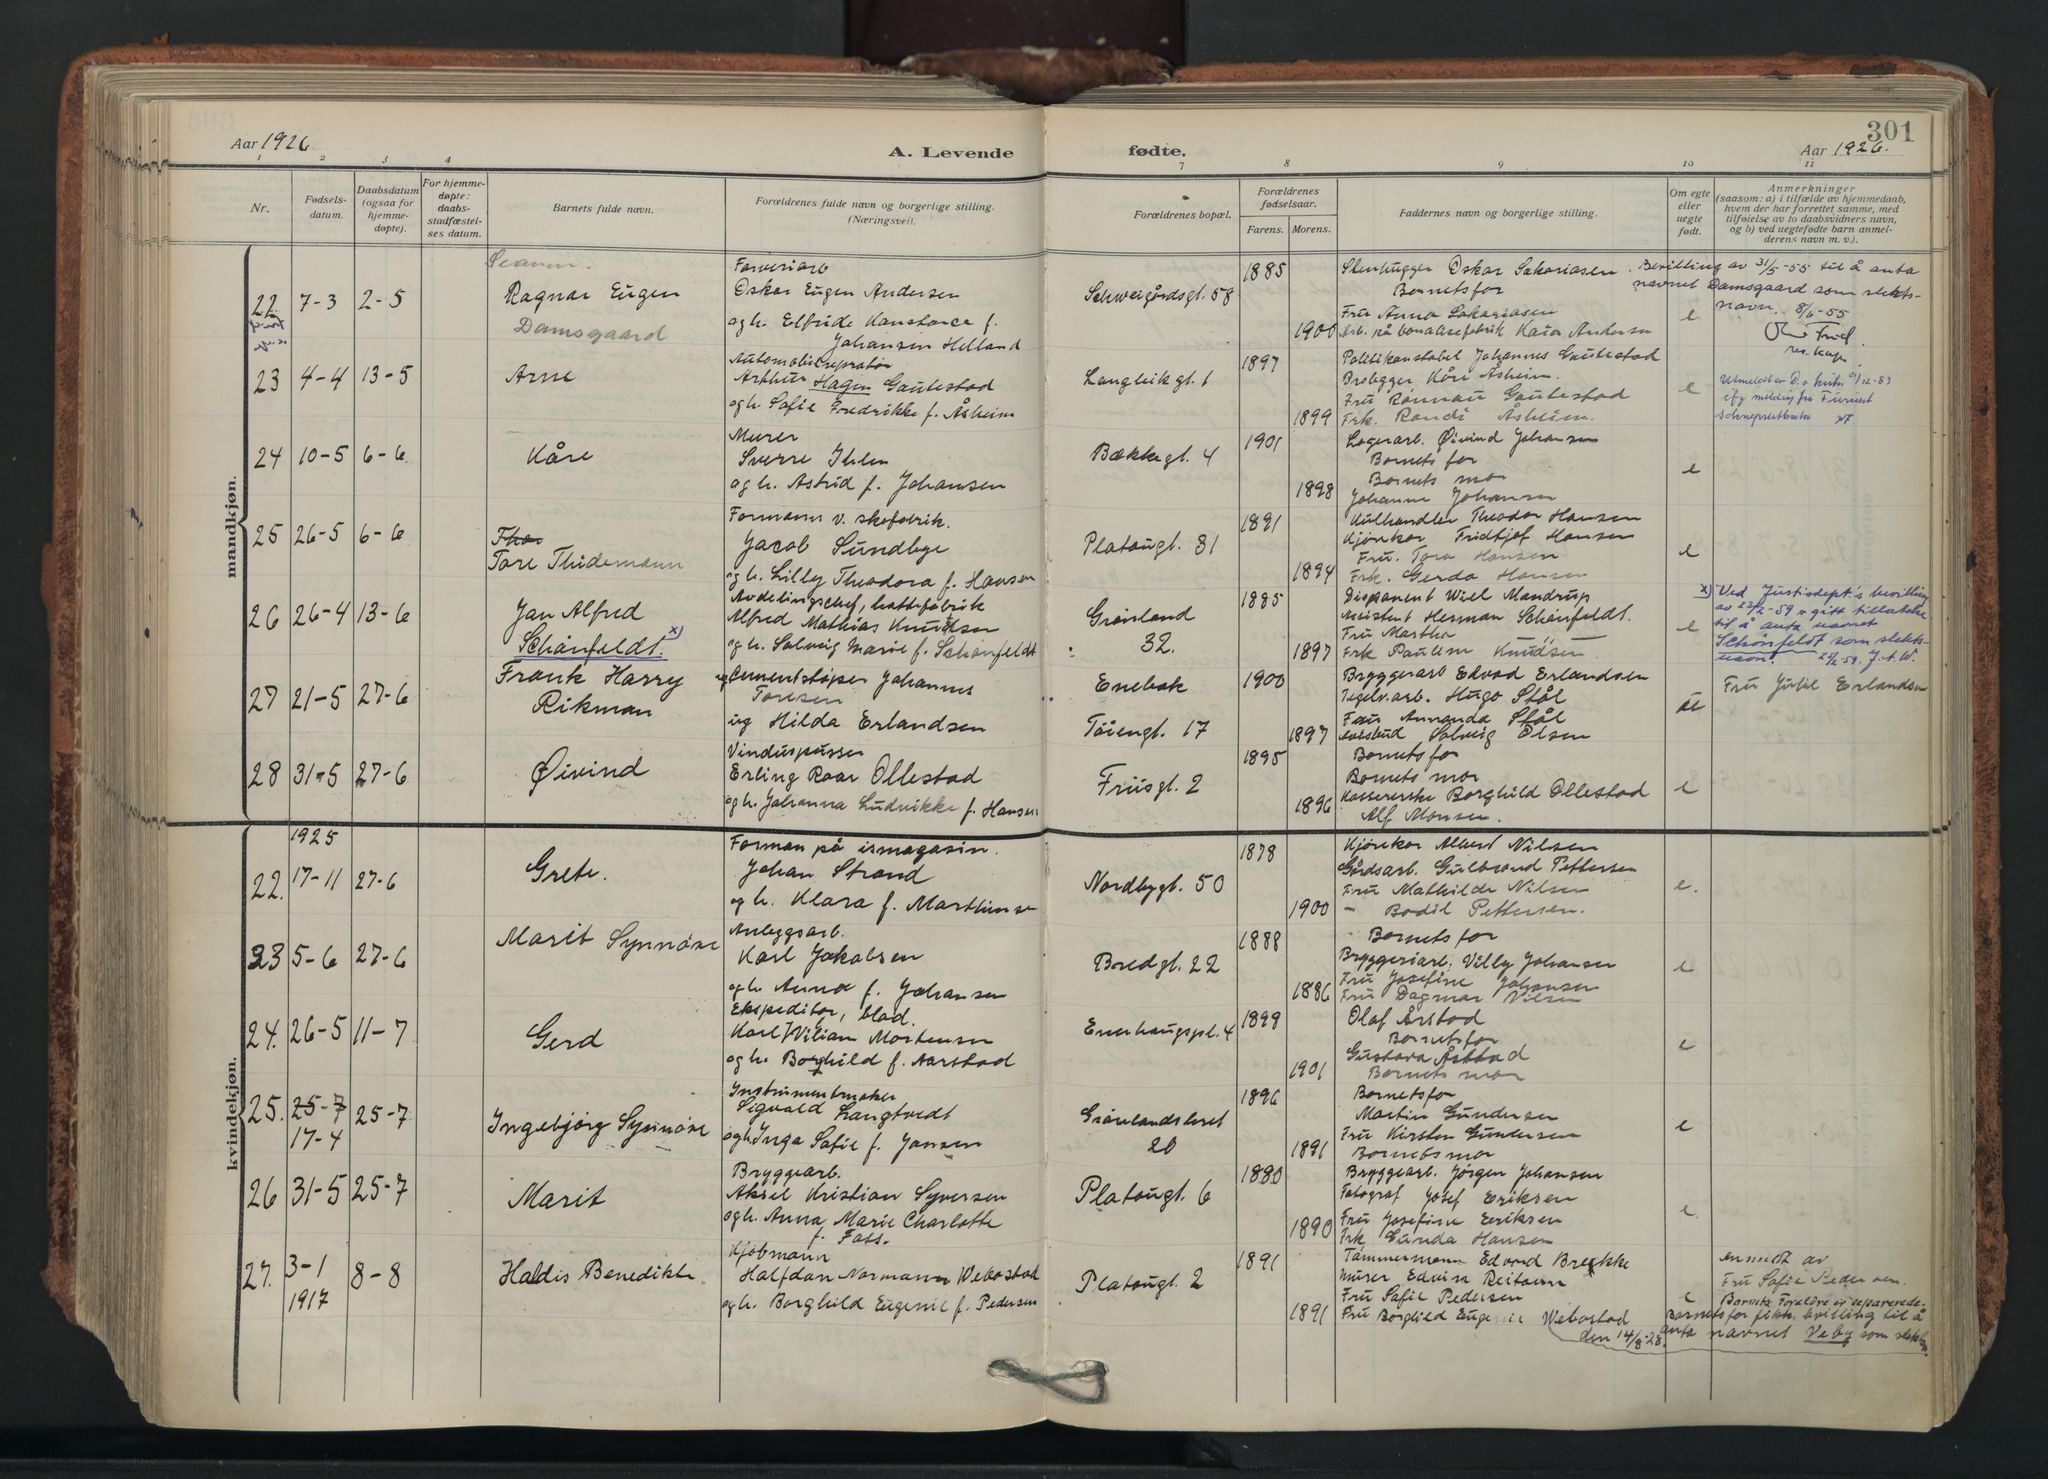 Aar 1926
A. Levende
fødte.
301
Aar 1926.
1 2 3 4 7 8 9 10 11
Nr.
Fødsels-
datum.
Daabsdatum
(ogsaa for
hjemme-
døpte).
For hjemme-
døpte:
daabs-
stadfæstel-
ses datum.
Barnets fulde navn.
Forældrenes fulde navn og borgerlige stilling.
(Næringsvei).
Forældrenes bopæl.
Forældrenes
fødselsaar.
Farens. Morens.
Faddernes navn og borgerlige stilling.
Om egte
eller
uegte
født.
Anmerkninger
(saasom: a) i tilfælde av hjemmedaab,
hvem der har forrettet samme, med
tilføielse av to daabsvidners navn,
og b) ved uegtefødte barn anmel-
derens navn m. v.).
mandkjøn.
22. 7-3 2-5
Ragnar Eugen
Damsgaard
Farveriarb
Oskar Eugen Andersen
og h. Elfride Konstance f.
Johansen Helland
Schweigårdsgt. 58
1885
1900
Stenhugger Oskar Sakariasen
Barnets far
Fru Anna Sakariasen
Kaia Andersen
e
Bevilling av 31/5-55 til å anta
navnet Damsgaard som slekts-
navn. 8/6-55
23 4-4 13-5
Arne
Automobilreparatør
Arthur Hagen Gautestad
og h. Sofie Fredrikke f. Åsheim
Langleikgt. 1
1897
1899
Politikonstabel Johannes Gautestad
Brolegger Kåre Åsheim.
Fru Rannau Gautestad
Frk. Randi Åsheim.
e
24 10-5 6-6
Kåre
Murer
Sverre Ihlen
og h. Astrid f. Johansen
Bækkegt. 4
1901
1898
Lagerarb. Øivind Johansen
Barnets far
Barnets mor
Johanne Johansen
e
25 26-5 6-6
Thor
Tore Thidemann
Formann v. skofabrik.
Jacob Sundbye
og h. Lilly Theodora f. Hansen
Platougt. 31
1891
1894
Kulhandler Theodor Hansen
Kjørekar Fridtjof Hansen
Fru. Tora Hansen
Frk. Gerda Hansen
e
26 26-4 13-6
Jan Alfred
Schönfeldt. x)
Avdelingschef, hattefabrik
Alfred Mathias Knudsen
og h. Solveig Marie f. Schönfeldt
Grønland
32.
1885
1897
Disponent Wiel Mandrup
Assistent Herman Schönfeldt.
Fru Martha
Frk Pauline Knudsen
e
x) Ved Justisdept's bevilling
av 23/2-59 er gitt tillatelse
til å anta navnet
Schönfeldt som slekts-
navn. J.A.W.
27 21-5 27-6
Frank Harry
Rikman
Cementstøper Johannes
Toresen
ug Hilda Erlandsen
Enebak
Tøiengt. 17
1900
1897
Bryggeriarb Edvad Erlandsen
Teglv.arb. Hugo Stål
Fru Amanda Stål
Solveig Olsen
ue
Fru Julie Erlandsen
28 31-5 27-6
Øivind
Vinduspusser
Erling Roar Ollestad
og h. Johanna Ludvikke f. Hansen
Friisgt. 2
1895
1896
Barnets far
Barnets mor
Kassererske Borghild Ollestad
Alf Monsen.
e
kvindekjøn.
1925
22. 17-11 27-6
Grete.
Forman på ismagasin.
Johan Strand
og h. Klara f. Marthinsen
Nordbygt. 50
1878
1900
Kjørekar Albert Nilsen
Gårdsarb. Gulbrand Pettersen
Fru Mathilde Nilsen
- Bodil Pettersen.
e.
23 5-6 27-6
Marit Synnøve
Anleggsarb.
Karl Jakobsen
og h. Anna f. Johansen
Bredgt. 22
1888
1886
Barnets far
Bryggeriarb. Villy Johansen
Fru Josefine Johansen
Fru Dagmar Nilsen
e
24. 26-5 11-7
Gerd
Ekspeditør, blad.
Karl Viliam Mortensen
og h. Borghild f. Aarstad
Enerhaugspl. 4
1899
1901
Olaf Årstad
Barnets far
Gustava Årstad
Barnets mor
e
25. 25-7 25-7
17-4
Ingebjørg Synnøve
Instrumentmaker
Sigvald Langtvedt
og h. Inga Sofie f. Jansen
Grønlandsleret
20
1896
1891
Barnets far
Martin Gundersen
Fru Kirsten Gundersen
Barnets mor
e
26 31-5 25-7
Marit
Bryggearb.
Aksel Kristian Syversen
og h. Anna Marie Charlotte
f. Foss.
Platougt. 6
1880
1890
Bryggearb. Jørgen Johansen
Fotograf Josef Eriksen
Fru Josefine Eriksen
Frk Gunda Hansen
e
27. 3-1 8-8
1917
Haldis Benedikte.
Kjøbmann
Halfdan Normann Webostad
og h. Borghild Eugenie f. Pedersen
Platougt. 2
1891
1891
Tømmermann Edvard Brekke
Murer Edvin Reitan
Fru Sofie Pedersen
Fru Borghild Eugenie Webostad
e
anmeldt av
Fru Sofie Pedersen.
Barnets Foreldre er separerede.
Barnets far fikk bevilling til å
den 14/8-28. anta navnet Veby som slektsn.